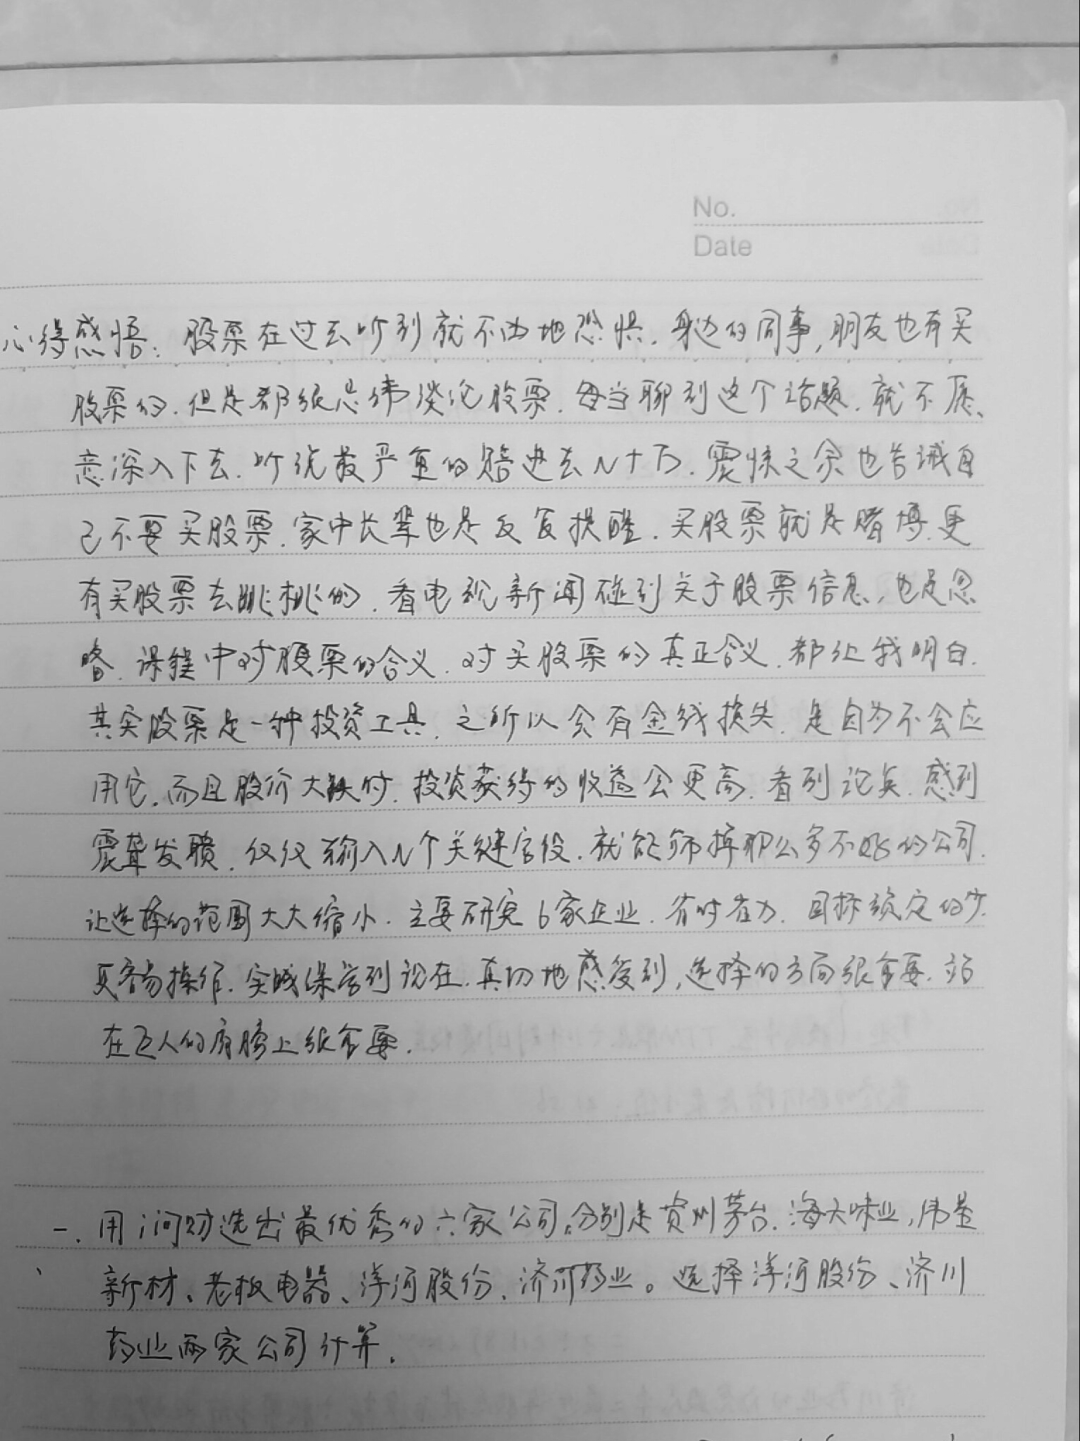 No.
Date
心得感悟：股票在过去听到就不由地恐惧．身边的同事，朋友也有买
股票的．但是都很忌讳谈论股票．每当聊到这个话题．就不愿
意深入下去．听说最严重的赔进去N十万．震惊之余也告诫自
己不要买股票．家中长辈也是反复提醒．买股票就是赌博．更
有买股票去跳楼的．看电视新闻碰到关于股票信息，也是忽
略．课程中对股票的含义．对买股票的真正含义．都让我明白．
其实股票是一种投资工具．之所以会有金钱损失．是因为不会应
用它．而且股价大跌时．投资获得的收益会更高．看到这真．感到
震聋发聩．仅仅输入N个关键字段．就能筛掉那么多不好的公司．
让选择的范围大大缩小．主要研究6家企业．省时省力．目标锁定的少．
更容易操作．实战课学到现在．真切地感受到，选择的方向很重要．站
在巨人的肩膀上很重要．
一．用i问财选出最优秀的六家公司。分别是贵州茅台．海天味业，伟星
新材、老板电器、洋河股份、济川药业。选择洋河股份、济川
药业两家公司计算．